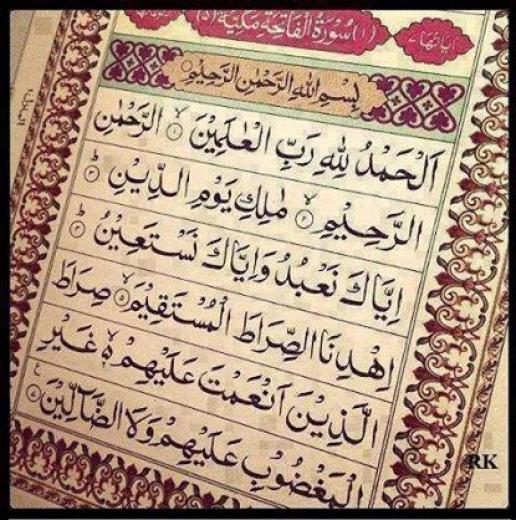 اٰيَاتُهَا ٧ (١) سُوْرَةُ الْفَاتِحَةِ مَكِّيَّةٌ (٥)
بِسْمِ اللهِ الرَّحْمٰنِ الرَّحِيْمِ
اَلْحَمْدُ لِلّٰهِ رَبِّ الْعٰلَمِيْنَ ۙ١ الرَّحْمٰنِ
الرَّحِيْمِ ۙ٢ مٰلِكِ يَوْمِ الدِّيْنِ ؕ٣
اِيَّاكَ نَعْبُدُ وَاِيَّاكَ نَسْتَعِيْنُ ؕ٤
اِهْدِنَا الصِّرَاطَ الْمُسْتَقِيْمَ ۙ٥ صِرَاطَ
الَّذِيْنَ اَنْعَمْتَ عَلَيْهِمْ ۙ٦ غَيْرِ
الْمَغْضُوْبِ عَلَيْهِمْ وَلَا الضَّآلِّيْنَ ٧
RK